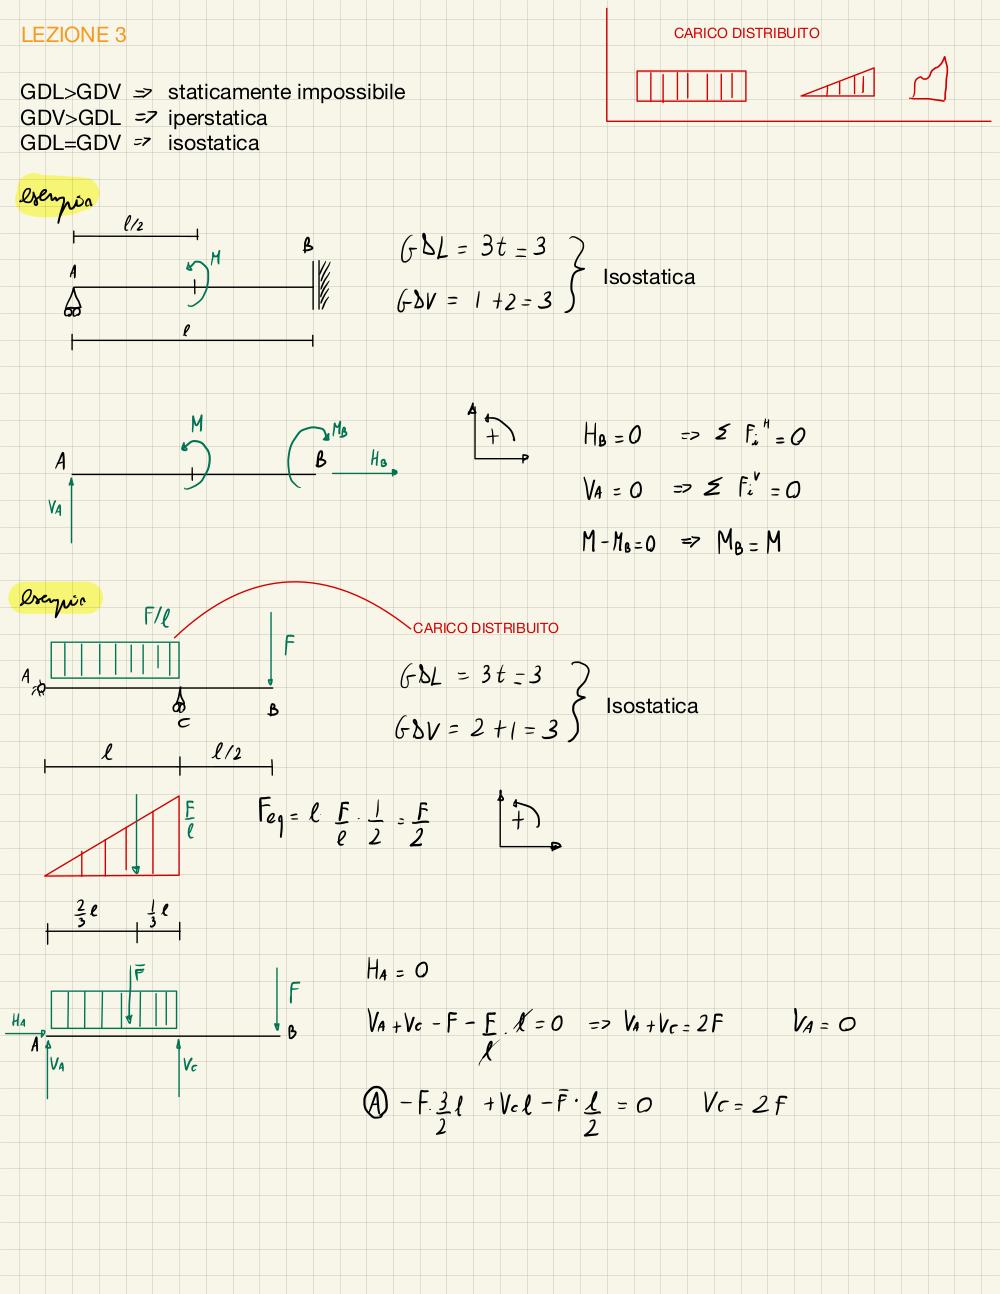 LEZIONE 3
CARICO DISTRIBUITO
GDL>GDV => staticamente impossibile
GDV>GDL => iperstatica
GDL=GDV => isostatica
esempio
l/2
A
M
B
l
GDL = 3t = 3
GDV = 1+2=3
Isostatica
A
M
M_B
B
H_B
V_A
+
H_B=0 => Σ F_i^H=0
V_A=0 => Σ F_i^V=0
M-M_B=0 => M_B=M
esempio
F/l
F
CARICO DISTRIBUITO
A
C
B
GDL = 3t=3
GDV = 2+1=3
Isostatica
l
l/2
F/l
F_eq = l F/l · 1/2 = F/2
+
2/3 l
1/3 l
F̄
F
H_A
A
B
V_A
V_C
H_A = 0
V_A+V_C - F - F/l · l = 0 => V_A+V_C = 2F V_A = 0
Ⓐ -F·3/2 l +V_C l - F̄ · l/2 = 0 V_C = 2F